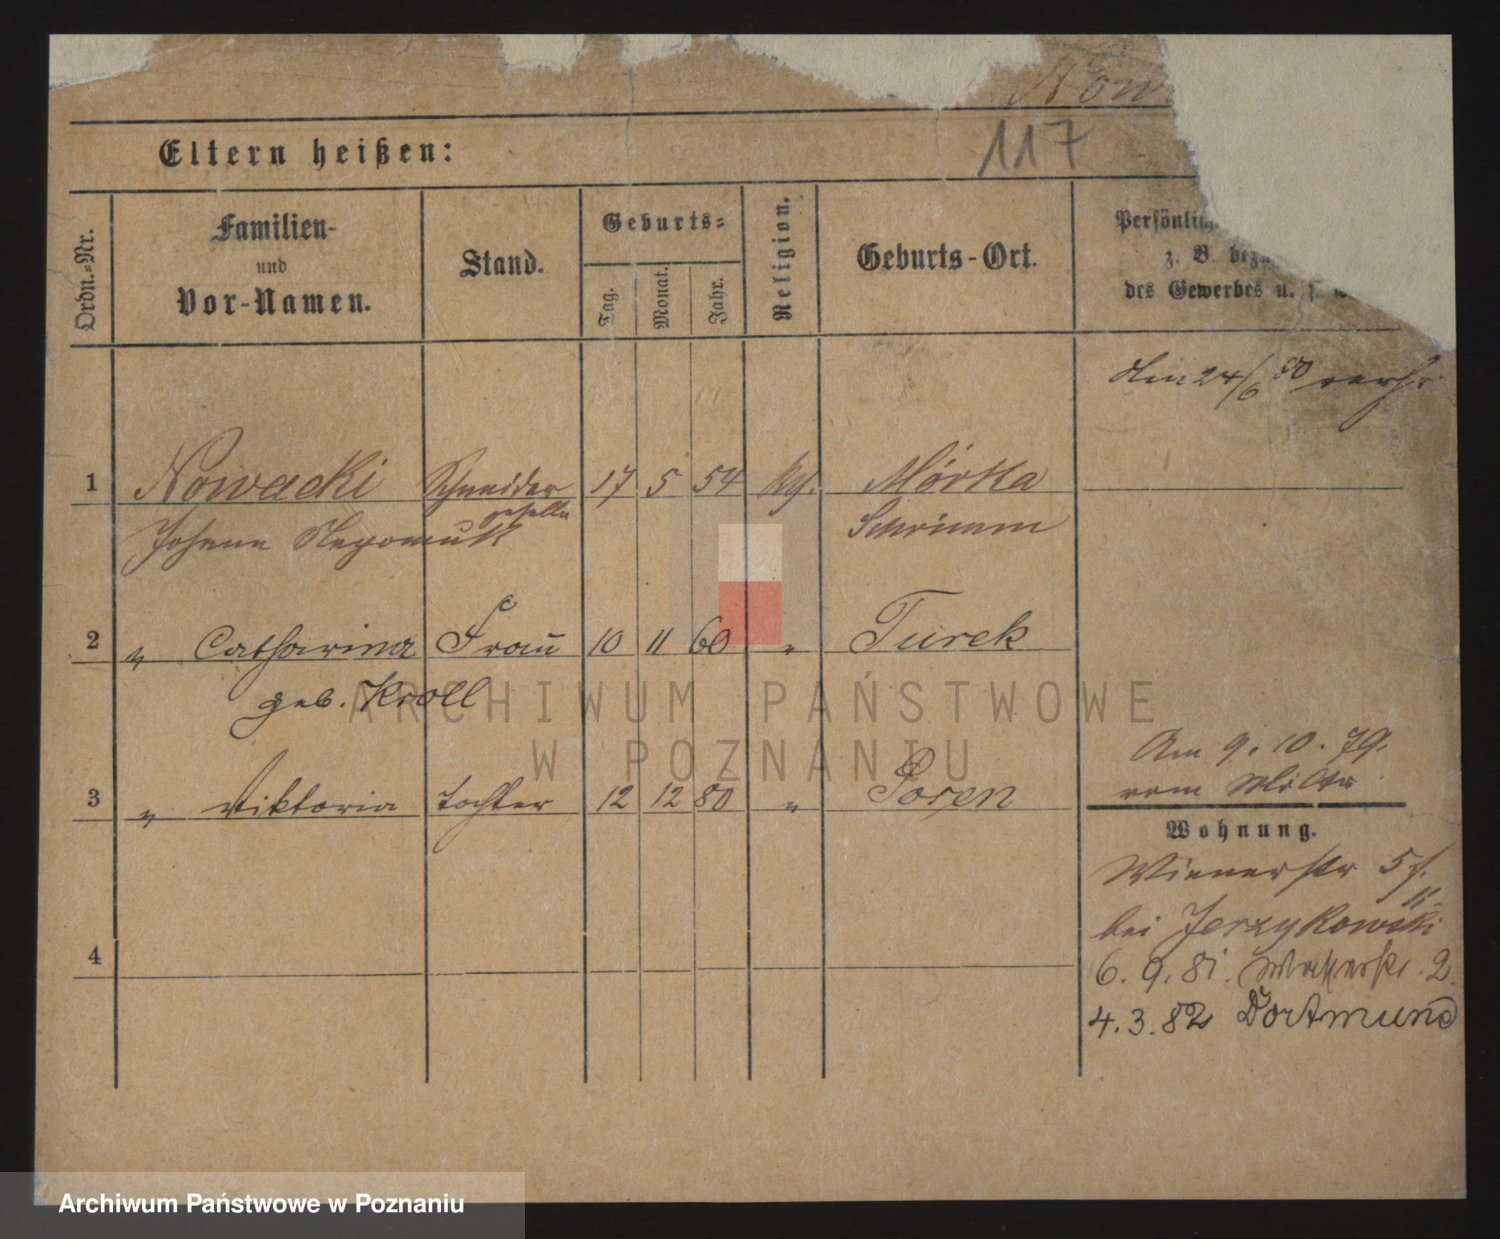 Now
117
Eltern heißen:
Ordn.-Nr.
Familien-
und
Vor-Namen.
Stand.
Geburts-
Tag.
Monat.
Jahr.
Religion.
Geburts-Ort.
Persönlic
z. B. bezü
des Gewerbes u. s. w.
Am 24/6 80 verh.
1 Nowacki Schneider 17 5 54 kth. Mórka
geselle
Johann Nepomuk Schrimm
2 " Catharina Frau 10 11 60 " Turek
geb. Kroll
Am 9. 10. 79.
vom Militr
3 " Viktoria Tochter 12 12 80 " Posen
Wohnung.
Wienerstr 5
bei Jerzykowski
4
6. 9. 81. 2.
4. 3. 82 Dortmund
ARCHIWUM PAŃSTWOWE
W POZNANIU
Archiwum Państwowe w Poznaniu